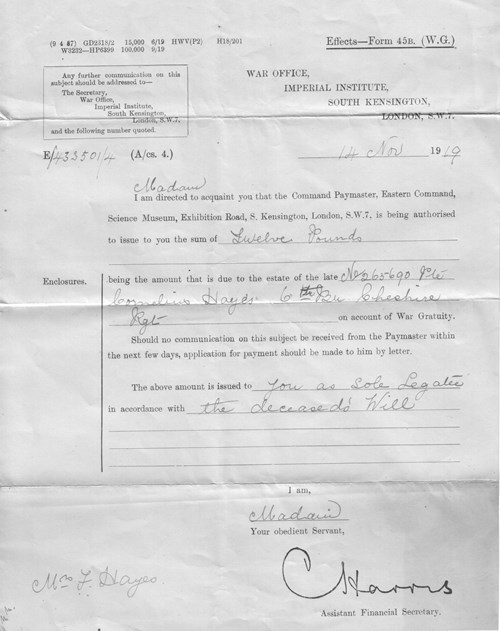 (9 4 87) GD2318/2 15,000 6/19 HWV(P2) H18/201
W3232—HP6399 100,000 9/19
Effects—Form 45B. (W.G.)
Any further communication on this
subject should be addressed to—
The Secretary,
War Office,
Imperial Institute,
South Kensington,
London, S.W.7,
and the following number quoted.
WAR OFFICE,
IMPERIAL INSTITUTE,
SOUTH KENSINGTON,
LONDON, S.W.7.
E/433501/4 (A/cs. 4.)
14 Nov 1919
Madam
I am directed to acquaint you that the Command Paymaster, Eastern Command,
Science Museum, Exhibition Road, S. Kensington, London, S.W.7, is being authorised
to issue to you the sum of Twelve Pounds
Enclosures.
being the amount that is due to the estate of the late No 265690 Pte
Cornelius Hayes. 6th Bn Cheshire
Rgt on account of War Gratuity.
Should no communication on this subject be received from the Paymaster within
the next few days, application for payment should be made to him by letter.
The above amount is issued to you as Sole Legatee
in accordance with the deceased's Will
I am,
Madam
Your obedient Servant,
Mrs F. Hayes.
C Harris
Assistant Financial Secretary.